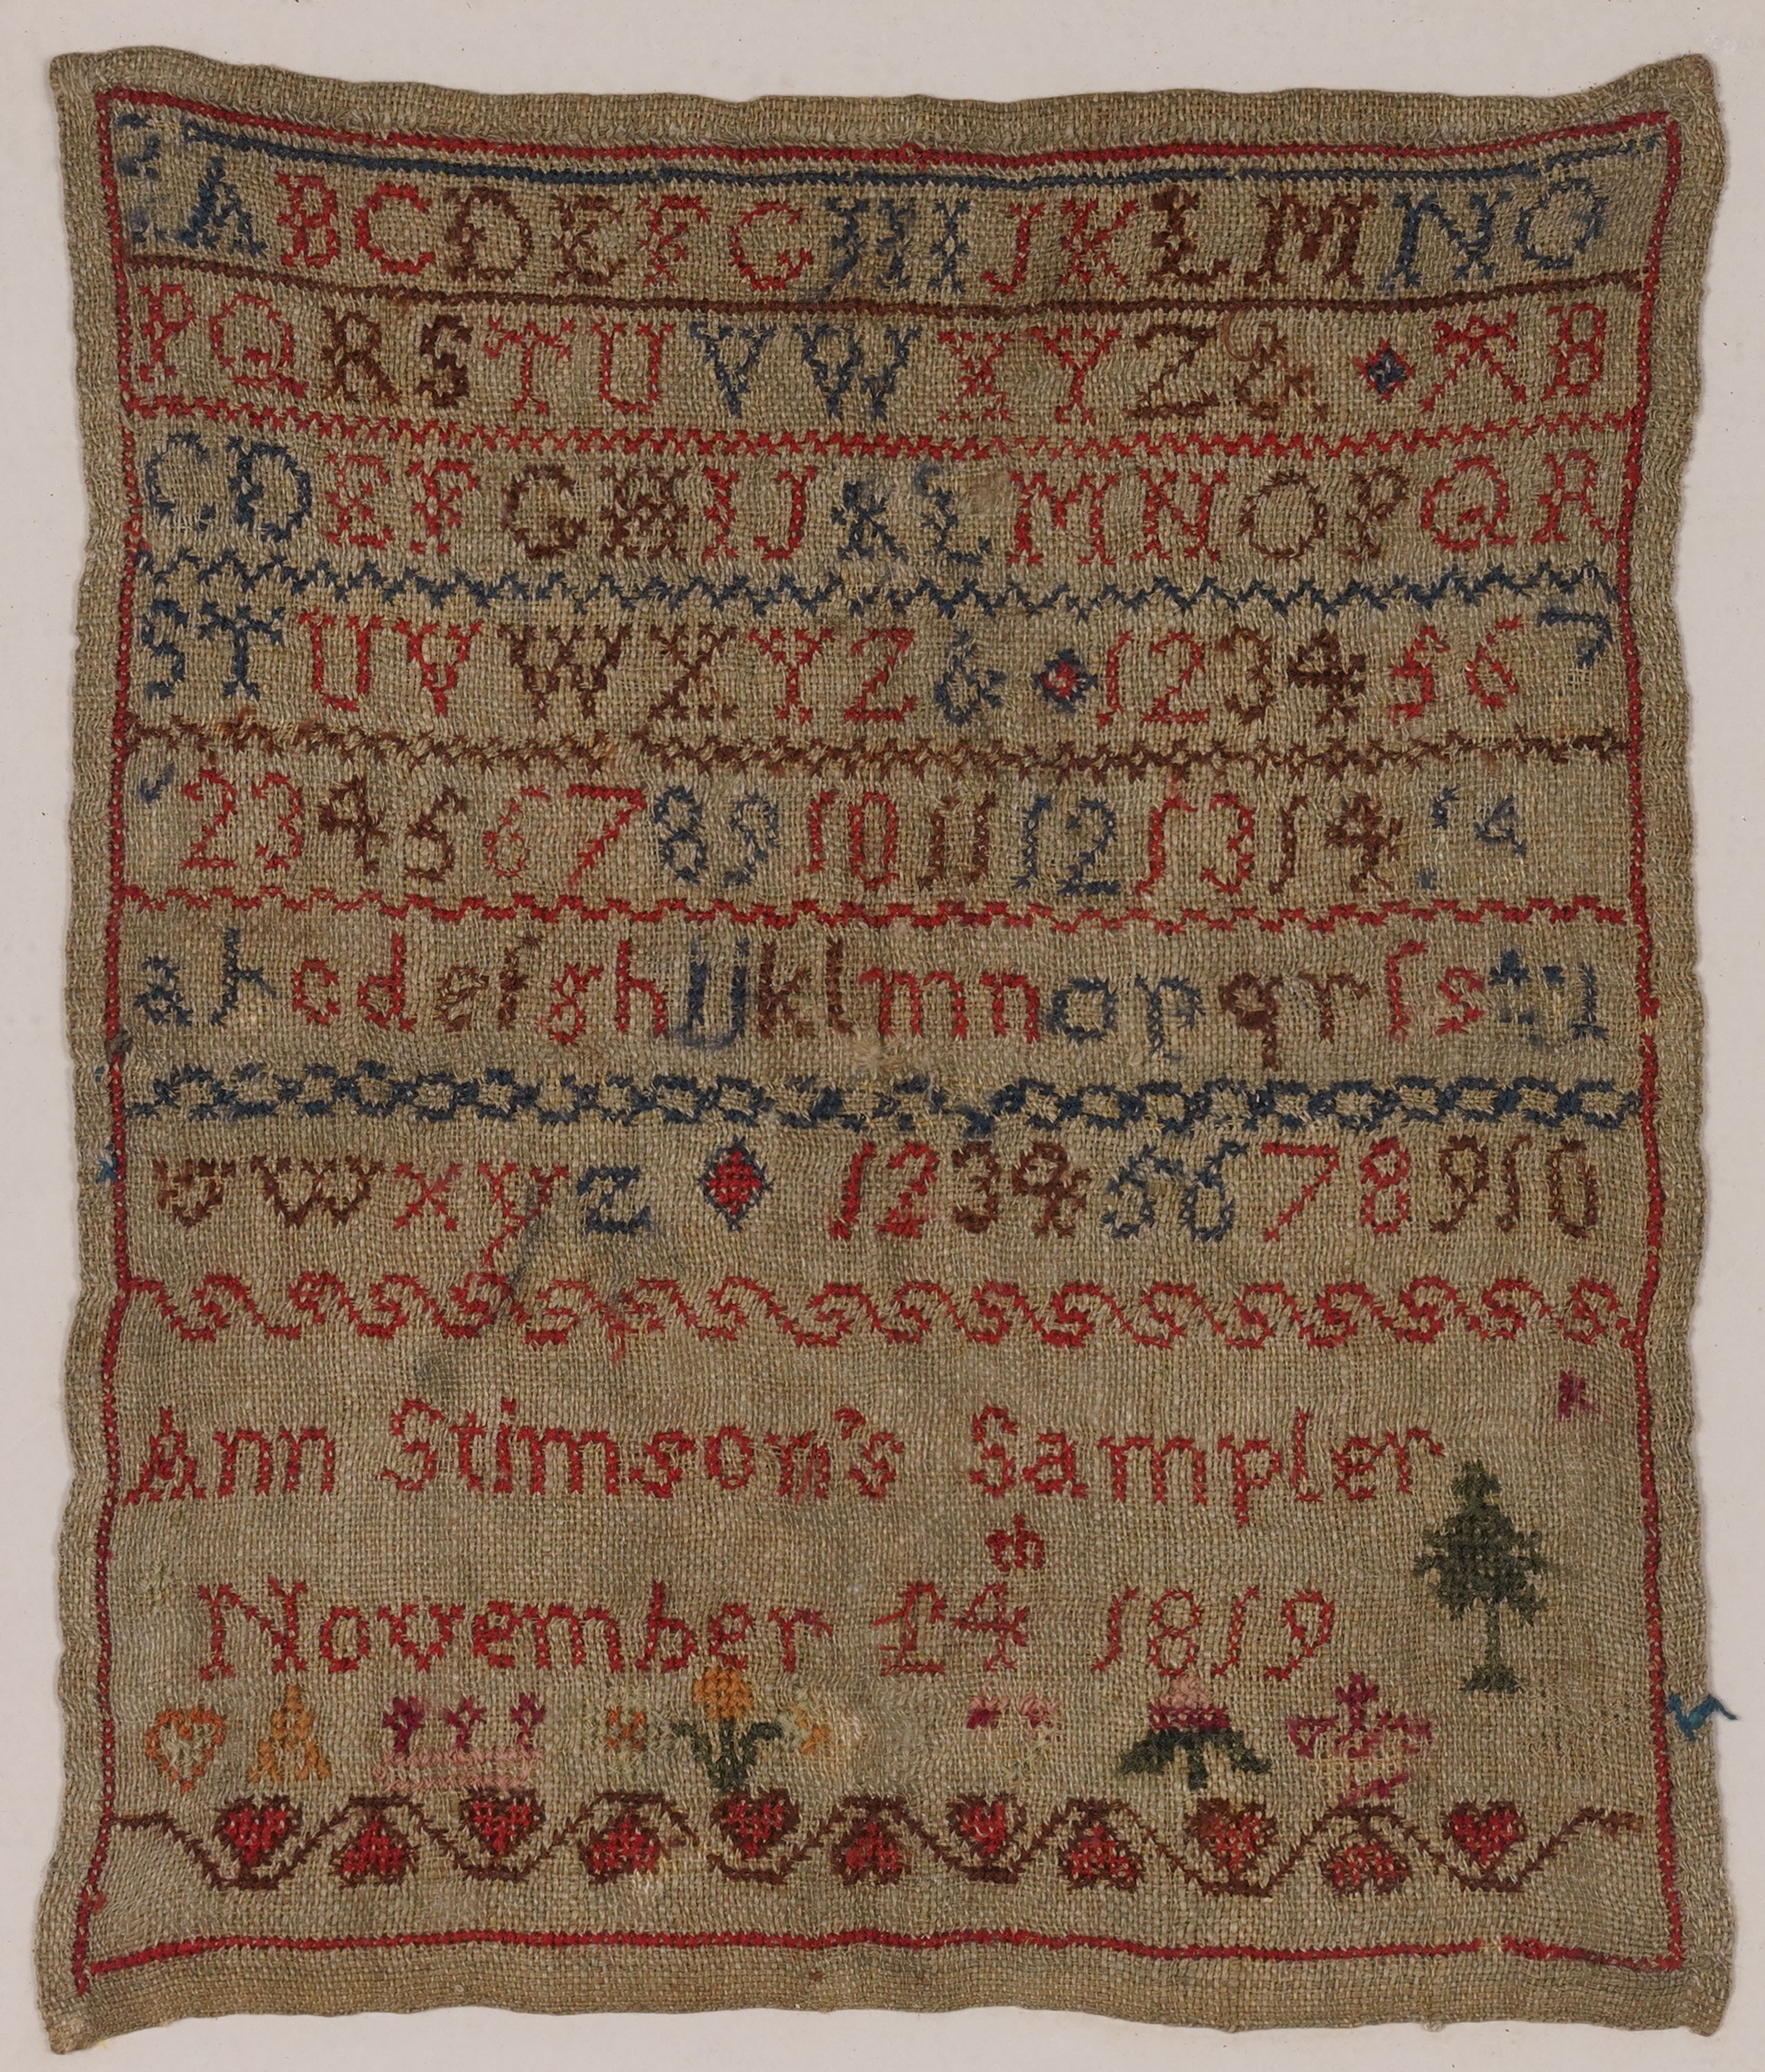 A B C D E F G H I J K L M N O
P Q R S T U V W X Y Z & A B
C D E F G H I J K L M N O P Q R
S T U V W X Y Z & 1 2 3 4 5 6 7
2 3 4 5 6 7 8 9 10 11 12 13 14
a b c d e f g h i j k l m n o p q r ſ s t u
v w x y z 1 2 3 4 5 6 7 8 9 10
Ann Stimson's Sampler
November 14th 1819